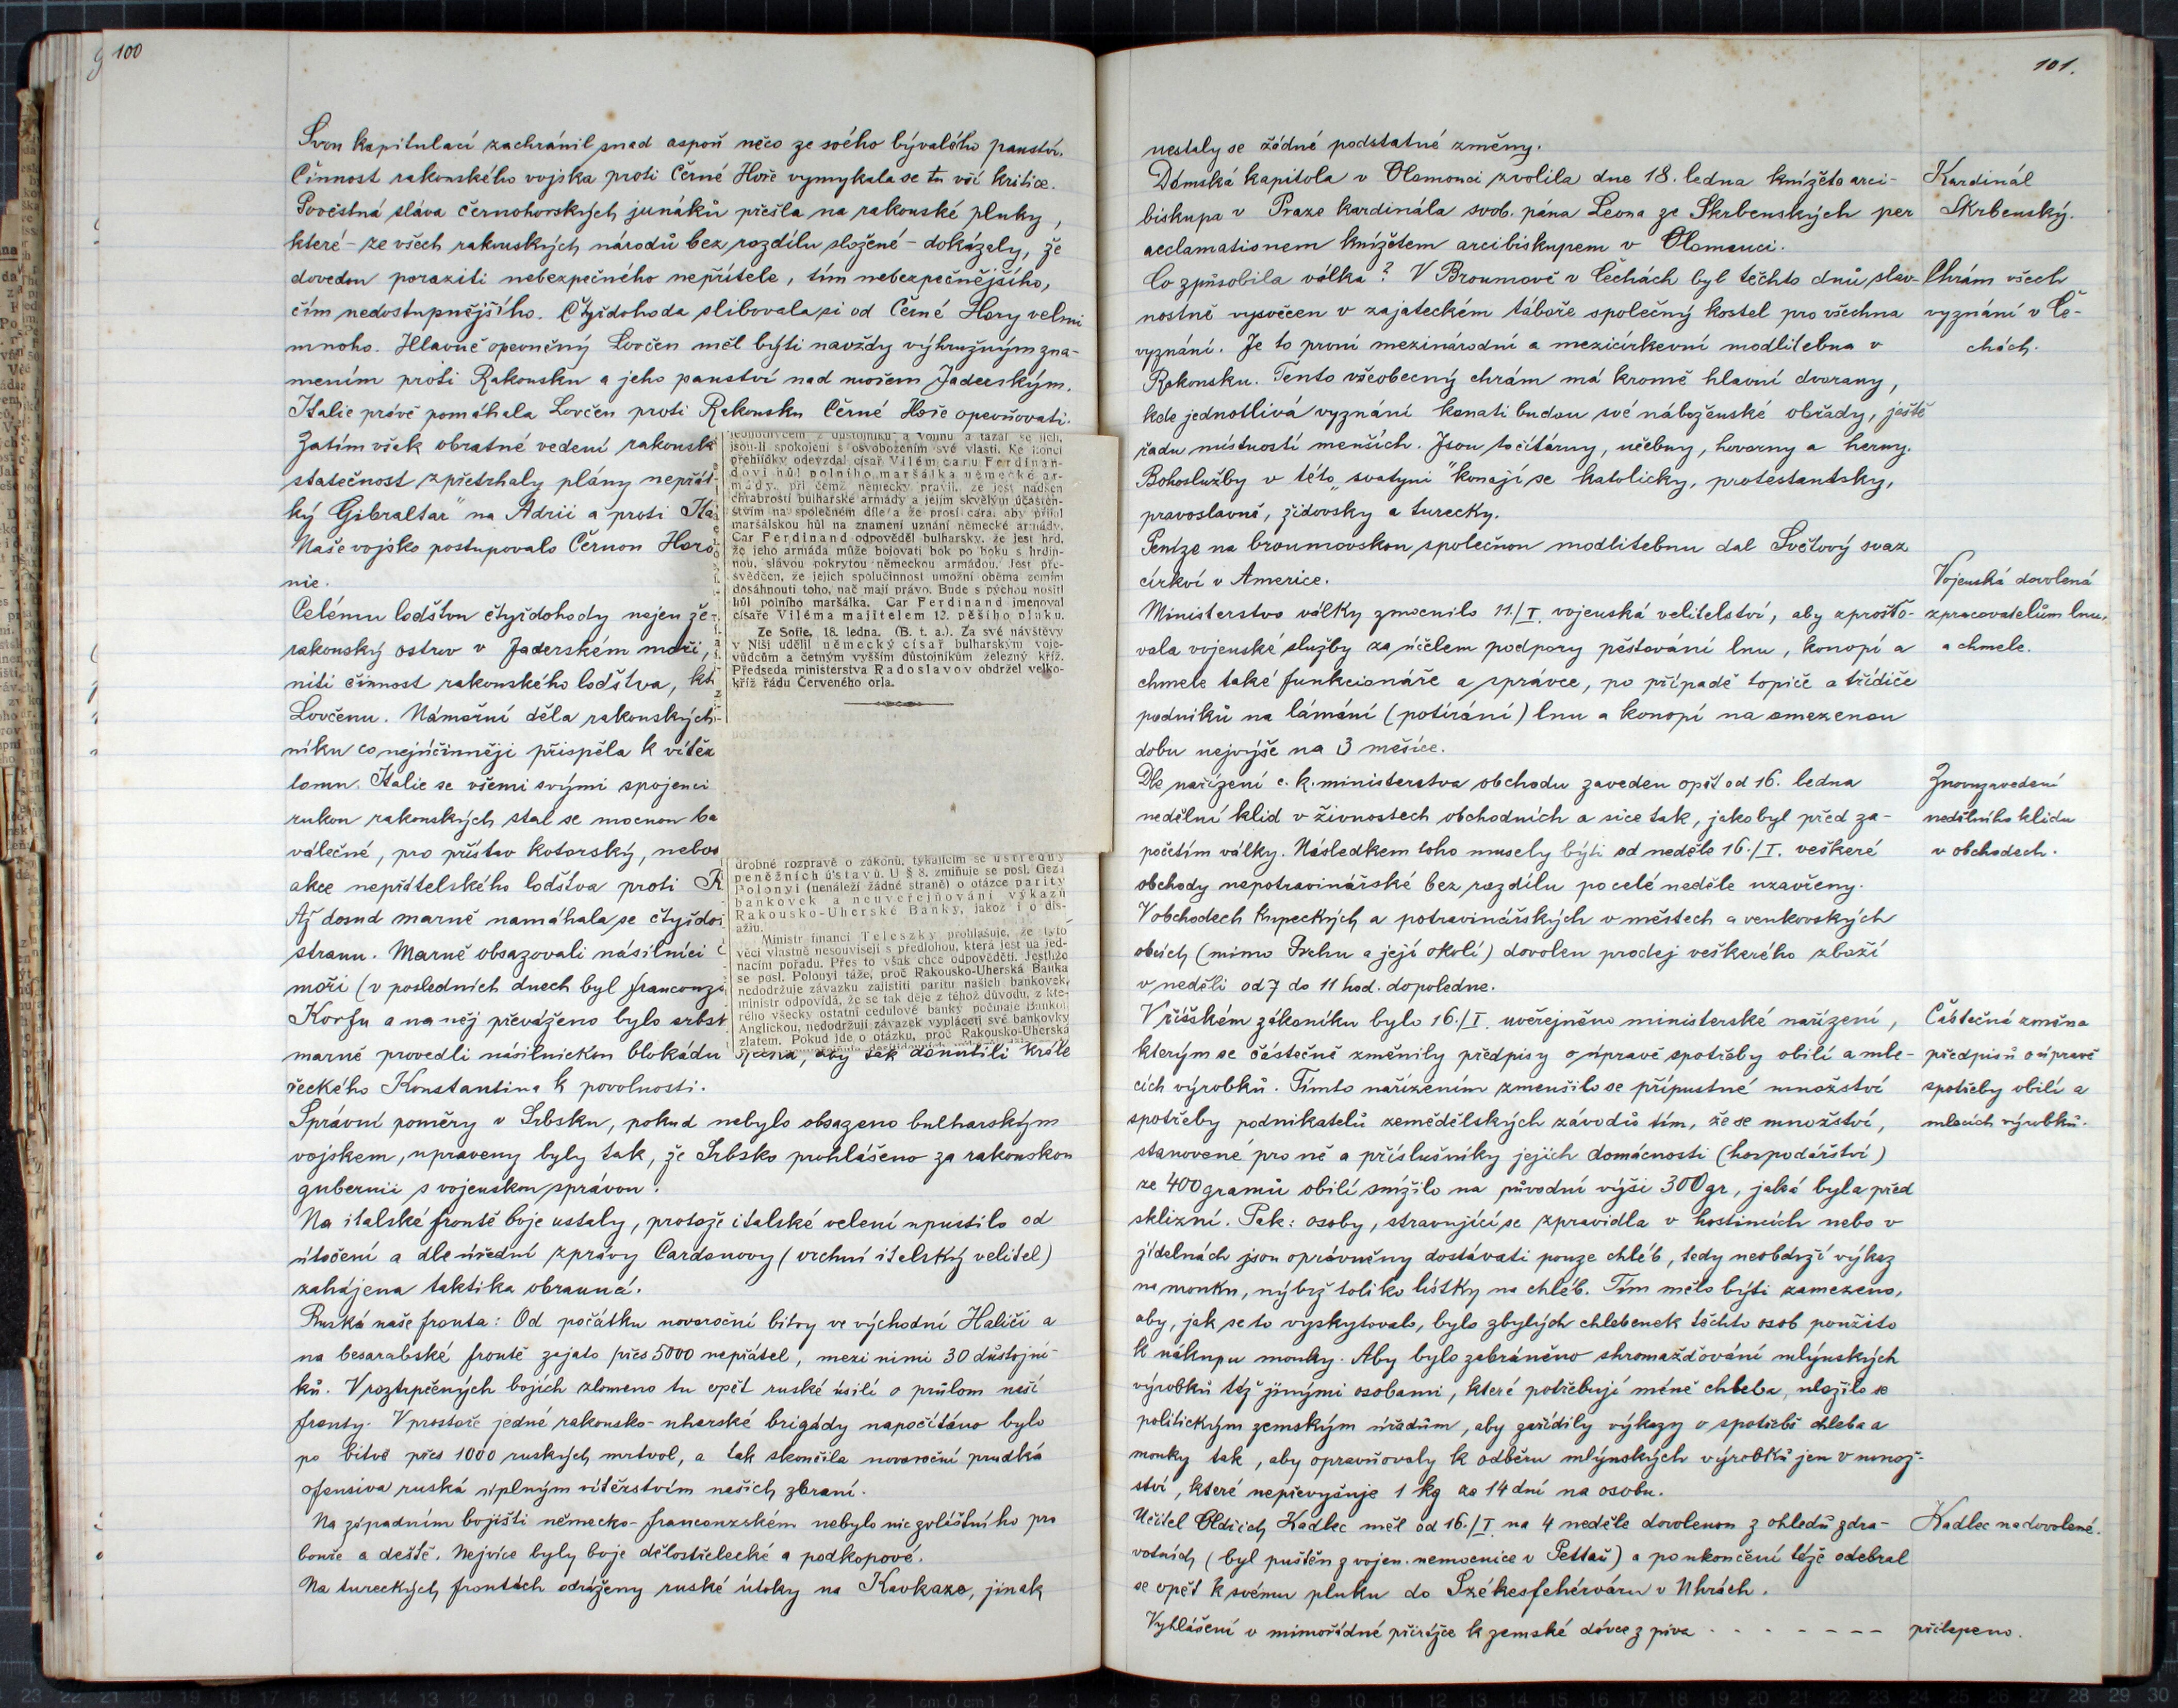 100
Svou kapitulací zachránil snad aspoň něco ze svého bývalého panství.
Činnost rakouského vojska proti Černé Hoře vymykala se tu vší kritice.
Pověstná sláva černohorských junáků přešla na rakouské pluky,
které – ze všech rakouských národů bez rozdílu složené – dokázaly, že
dovedou poraziti nebezpečného nepřítele, tím nebezpečnějšího,
čím nedostupnějšího. Čtyřdohoda slibovala si od Černé Hory velmi
mnoho. Hlavně opevněný Lovčen měl býti navždy výhružným zna-
mením proti Rakousku a jeho panství nad mořem Jaderským.
Italie právě pomáhala Lovčen proti Rakousku Černé Hoře opevňovati.
Zatím však obratné vedení rakousk
statečnost zpřetrhaly plány nepřát
ký Gibraltar" na Adrii a proti Ita
Naše vojsko postupovalo Černou Horo
nie.
Celému loďstvu čtyřdohody nejen že
rakouský ostrov v Jaderském moři,
niti činnost rakouského loďstva, kt
Lovčenu. Námořní děla rakouských
níku co nejúčinněji přispěla k vítěz
tomu. Italie se všemi svými spojenci
rukou rakouských stal se mocnou ba
válečné, pro přístav kotorský, nebo
akce nepřátelského loďstva proti R
Až dosud marně namáhala se čtyřdo
stranu. Marně obsazovali násilníci
moři (v posledních dnech byl francouz
Korfu a na něj převáženo bylo srbsk
marně provedli násilnickou blokádu Řecka, aby tak donutili krále
řeckého Konstantina k povolnosti.
Správní poměry v Srbsku, pokud nebylo obsazeno bulharským
vojskem, upraveny byly tak, že Srbsko prohlášeno za rakouskou
gubernii s vojenskou správou.
Na italské frontě boje ustaly, protože italské velení upustilo od
útočení a dle úřední zprávy Cardonovy (vrchní italský velitel)
zahájena taktika obranná.
Ruská naše fronta: Od počátku novoroční bitvy ve východní Haliči a
na besarabské frontě zajato přes 5000 nepřátel, mezi nimi 30 důstojní-
ků. V roztrpčených bojích zlomeno tu opět ruské úsilí o průlom naší
fronty. V prostoře jedné rakousko-uherské brigády napočítáno bylo
po bitvě přes 1000 ruských mrtvol, a tak skončila novoroční prudká
ofensiva ruská úplným vítězstvím našich zbraní.
Na západním bojišti německo-francouzském nebylo nic zvláštního pro
bouře a deště. Nejvíce byly boje dělostřelecké a podkopové.
Na tureckých frontách odraženy ruské útoky na Kavkaze, jinak
jednotlivcem z důstojníků a vojínů a tázal se jich,
jsou-li spokojeni s osvobozením své vlasti. Ke konci
přehlídky odevzdal císař Vilém caru Ferdinan-
dovi hůl polního maršálka německé ar-
mády, při čemž německy pravil, že jest nadšen
chrabrostí bulharské armády a jejím skvělým účasten-
stvím na společném díle a že prosí cara, aby přijal
maršálskou hůl na znamení uznání německé armády.
Car Ferdinand odpověděl bulharsky, že jest hrd,
že jeho armáda může bojovati bok po boku s hrdin-
nou, slávou pokrytou německou armádou. Jest pře-
svědčen, že jejich spolučinnost umožní oběma zemím
dosáhnouti toho, nač mají právo. Bude s pýchou nositi
hůl polního maršálka. Car Ferdinand jmenoval
císaře Viléma majitelem 12. pěšího pluku.
Ze Sofie, 18. ledna. (B. t. a.). Za své návštěvy
v Niši udělil německý císař bulharským voje-
vůdcům a četným vyšším důstojníkům železný kříž.
Předseda ministerstva Radoslavov obdržel velko-
kříž řádu Červeného orla.
drobné rozpravě o zákonu, týkajícím se ústředny
peněžních ústavů. U § 8. zmiňuje se posl. Gezi
Polonyi (nenáleží žádné straně) o otázce parity
bankovek a neuveřejňování výkazů
Rakousko-Uherské Banky, jakož i o dis-
ažiu.
Ministr financí Teleszky prohlašuje, že tyto
věci vlastně nesouvisejí s předlohou, která jest na jed-
nacím pořadu. Přes to však chce odpověděti. Jestliže
se posl. Polonyi táže, proč Rakousko-Uherská Banka
nedodržuje závazku zajistiti paritu našich bankovek,
ministr odpovídá, že se tak děje z téhož důvodu, z kte-
rého všecky ostatní cedulové banky počínaje Bankou
Anglickou, nedodržují závazek vypláceti své bankovky
zlatem. Pokud jde o otázku, proč Rakousko-Uherská
101.
nestaly se žádné podstatné změny.
Dómská kapitola v Olomouci zvolila dne 18. ledna knížeto arci-
biskupa v Praze kardinála svob. pána Leona ze Skrbenských per
acclamationem knížetem arcibiskupem v Olomouci.
Kardinál
Skrbenský.
Co způsobila válka? V Broumově v Čechách byl těchto dnů slav-
nostně vysvěcen v zajateckém táboře společný kostel pro všechna
vyznání. Je to první mezinárodní a mezicírkevní modlitebna v
Rakousku. Tento všeobecný chrám má kromě hlavní dvorany,
kde jednotlivá vyznání konati budou své náboženské obřady, ještě
řadu místností menších. Jsou to čítárny, učebny, hovorny a herny.
Bohoslužby v této „svatyni" konají se katolicky, protestantsky,
pravoslavně, židovsky a turecky.
Peníze na broumovskou společnou modlitebnu dal Světový svaz
církví v Americe.
Chrám všech
vyznání v Če-
chách.
Ministerstvo války zmocnilo 11./I. vojenská velitelství, aby zprošťo-
vala vojenské služby za účelem podpory pěstování lnu, konopí a
chmele také funkcionáře a správce, po případě topiče a třídiče
podniků na lámání (potírání) lnu a konopí na omezenou
dobu nejvýše na 3 měsíce.
Vojenská dovolená
zpracovatelům lnu,
a chmele.
Dle nařízení c. k. ministerstva obchodu zaveden opět od 16. ledna
nedělní klid v živnostech obchodních a sice tak, jako byl před za-
početím války. Následkem toho musely býti od neděle 16./I. veškeré
obchody nepotravinářské bez rozdílu po celé neděle uzavřeny.
V obchodech kupeckých a potravinářských v městech a venkovských
obcích (mimo Prahu a její okolí) dovolen prodej veškerého zboží
v neděli od 7 do 11 hod. dopoledne.
Znovuzavedení
nedělního klidu
v obchodech.
V říšském zákoníku bylo 16./I. uveřejněno ministerské nařízení,
kterým se částečně změnily předpisy o úpravě spotřeby obilí a mle-
cích výrobků. Tímto nařízením zmenšilo se přípustné množství
spotřeby podnikatelů zemědělských závodů tím, že se množství,
stanovené pro ně a příslušníky jejich domácnosti (hospodářství)
ze 400 gramů obilí snížilo na původní výši 300 gr, jaká byla před
sklizní. Pak: osoby, stravující se zpravidla v hostincích nebo v
jídelnách jsou oprávněny dostávati pouze chléb, tedy neobdrží výkaz
na mouku, nýbrž toliko lístky na chléb. Tím mělo býti zamezeno,
aby, jak se to vyskytovalo, bylo zbylých chlebenek těchto osob použito
k nákupu mouky. Aby bylo zabráněno shromažďování mlýnských
výrobků též jinými osobami, které potřebují méně chleba, uložilo se
politickým zemským úřadům, aby zařídily výkazy o spotřebě chleba a
mouky tak, aby opravňovaly k odběru mlýnských výrobků jen v množ-
ství, které nepřevyšuje 1 kg za 14 dní na osobu.
Částečná změna
předpisů o úpravě
spotřeby obilí a
mlecích výrobků.
Učitel Oldřich Kadlec měl od 16./I. na 4 neděle dovolenou z ohledů zdra-
votních (byl puštěn z vojen. nemocnice v Pettau) a po ukončení téže odebral
se opět k svému pluku do Székesfehérváru v Uhrách.
Kadlec na dovolené.
Vyhlášení o mimořádné přirážce k zemské dávce z piva - - - - - - - přilepeno.